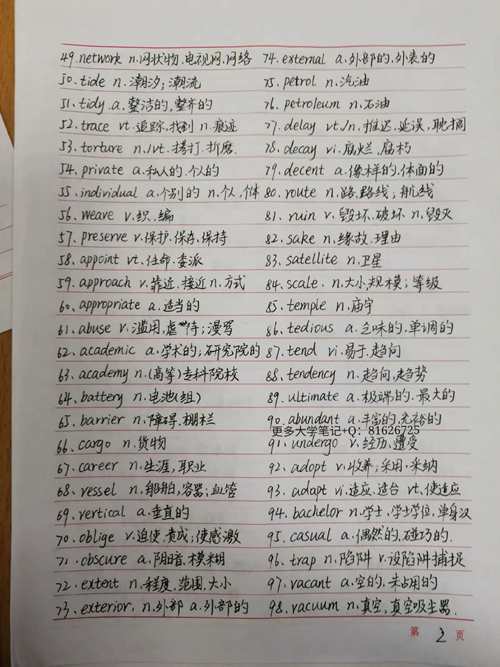 49. network n.网状物.电视网.网络
50. tide n.潮汐;潮流
51. tidy a.整洁的,整齐的
52. trace vt.追踪.找到 n.痕迹
53. torture n./vt.拷打.折磨.
54. private a.私人的.个人的
55. individual a.个别的 n.个人,个体
56. weave v.织.编
57. preserve v.保护.保存.保持
58. appoint vt.任命.委派
59. approach v.靠近.接近 n.方式
60. appropriate a.适当的
61. abuse v.滥用.虐待;谩骂
62. academic a.学术的;研究院的
63. academy n.(高等)专科院校
64. battery n.电池(组)
65. barrier n.障碍.栅栏
66. cargo n.货物
67. career n.生涯.职业
68. vessel n.船舶,容器;血管
69. vertical a.垂直的
70. oblige v.迫使.责成;使感激
71. obscure a.阴暗.模糊
72. extent n.程度.范围.大小
73. exterior. n.外部 a.外部的
74. external a.外部的,外表的
75. petrol n.汽油
76. petroleum n.石油
77. delay vt./n.推迟.延误,耽搁
78. decay vi.腐烂.腐朽
79. decent a.像样的.体面的
80. route n.路.路线;航线
81. ruin v.毁坏.破坏 n.毁灭
82. sake n.缘故.理由
83. satellite n.卫星
84. scale n.大小.规模;等级
85. temple n.庙宇
86. tedious a.乏味的,单调的
87. tend vi.易于.趋向
88. tendency n.趋向.趋势
89. ultimate a.极端的.最大的
90. abundant a.丰富的.充裕的
更多大学笔记+Q: 81626725
91. undergo v.经历.遭受
92. adopt v.收养;采用.采纳
93. adapt vi.适应.适合 vt.使适应
94. bachelor n.学士,学士学位,单身汉
95. casual a.偶然的,碰巧的.
96. trap n.陷阱 v.设陷阱捕捉
97. vacant a.空的.未占用的
98. vacuum n.真空,真空吸尘器.
第 2 页